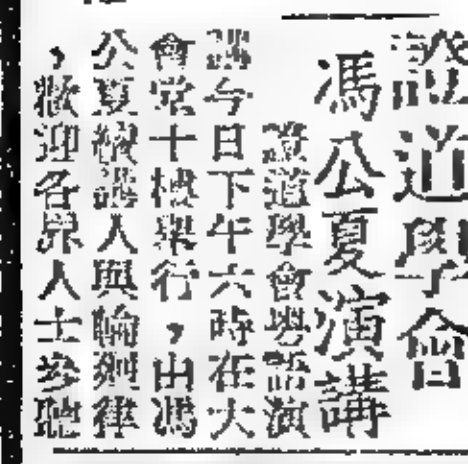 證道學會
馮公夏演講
證道學會粵語演
講今日下午六時在大
會堂十樓舉行,由馮
公夏續講人與輪廻律
,歡迎各界人士參聽